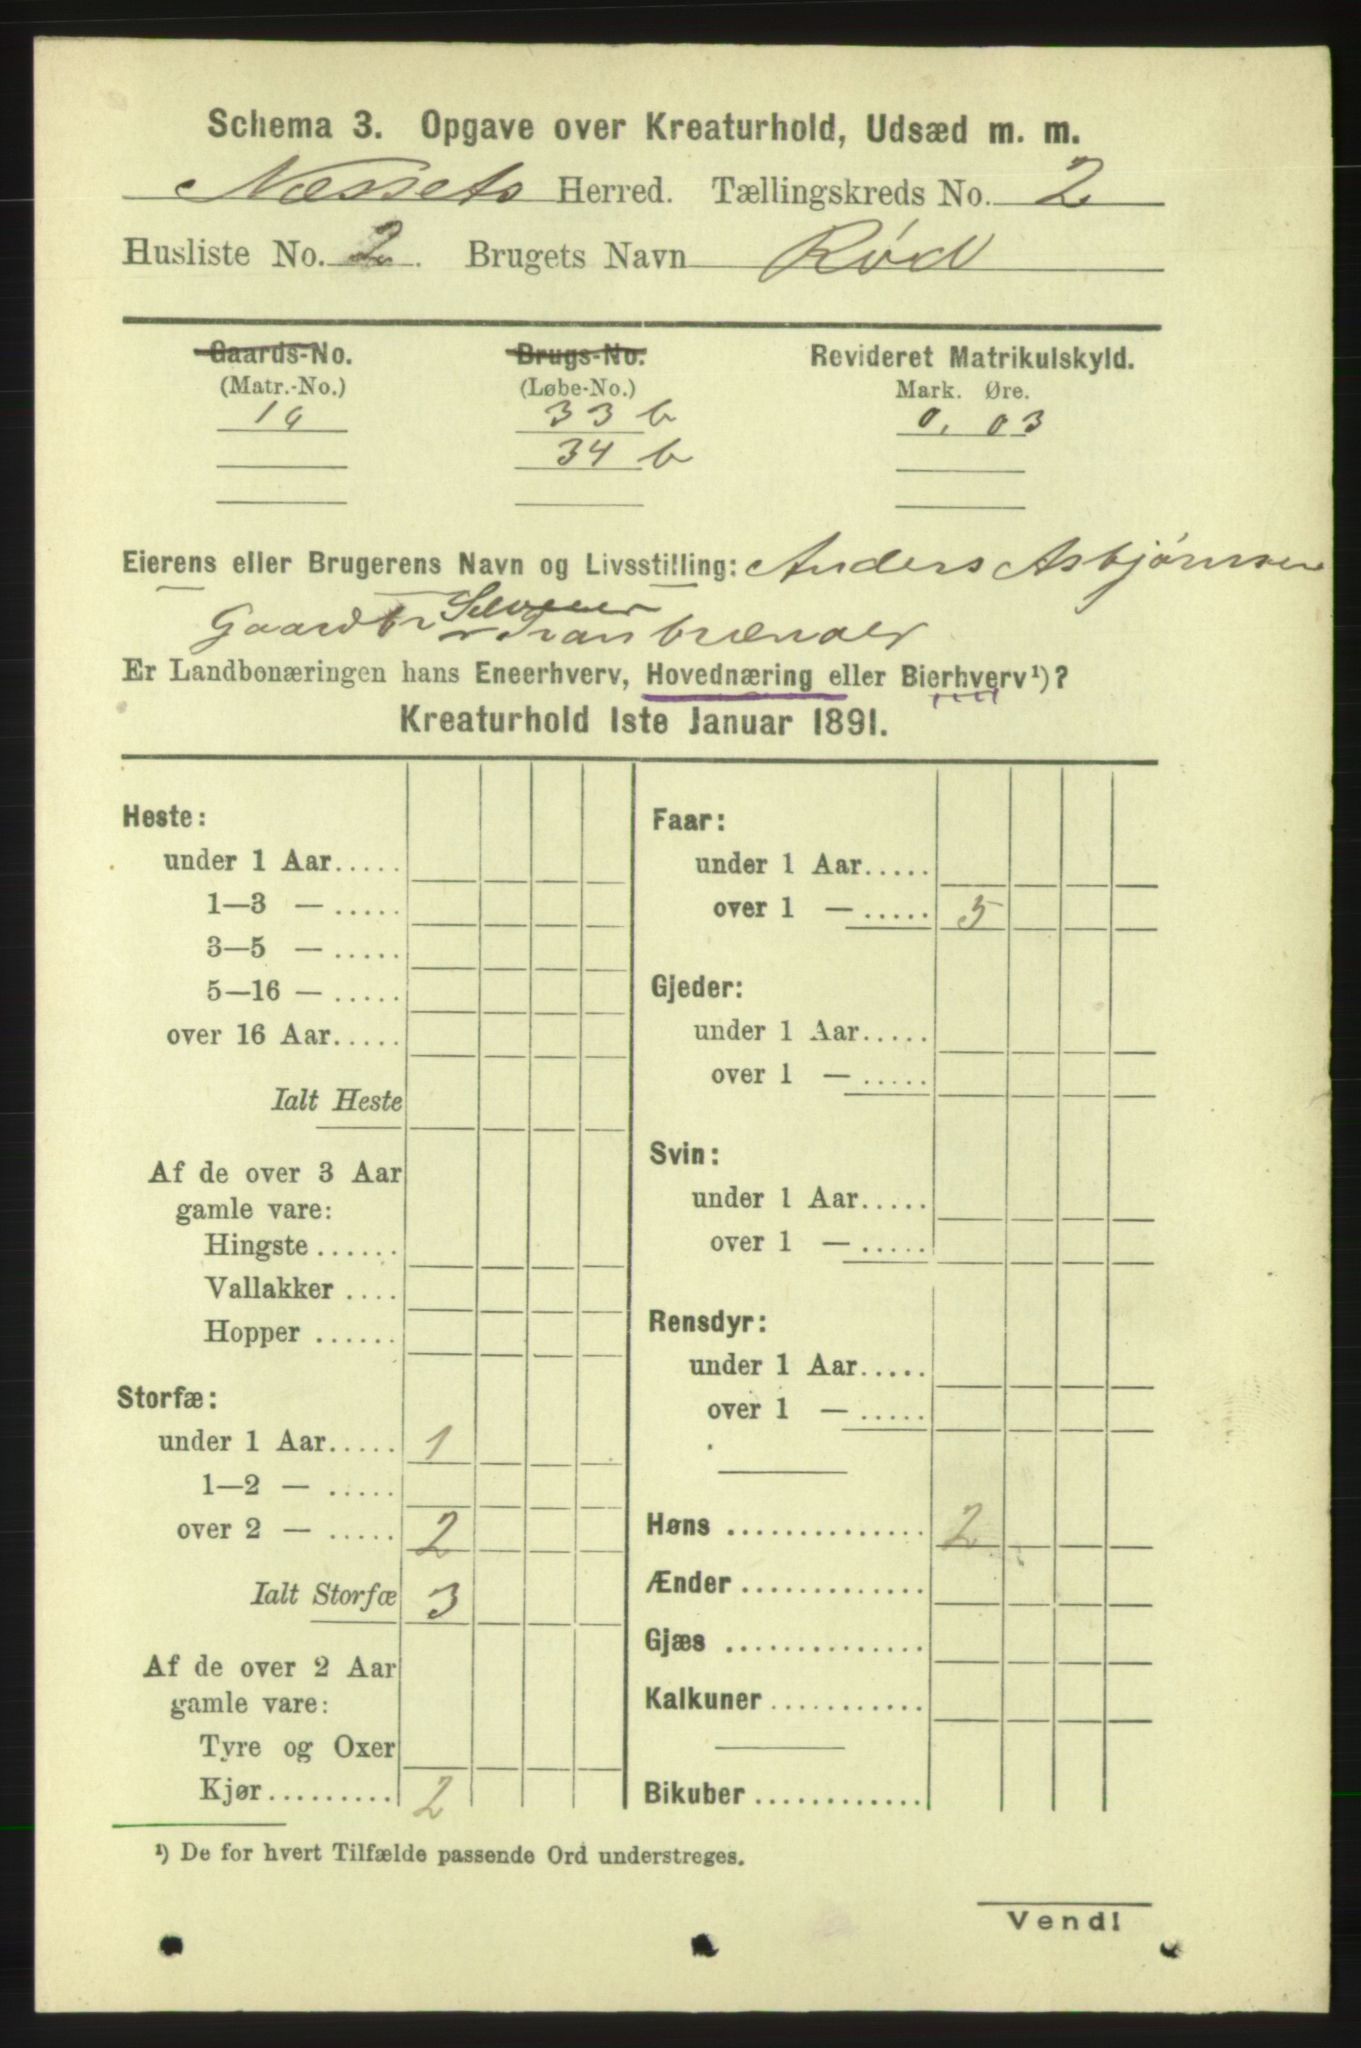 Schema 3. Opgave over Kreaturhold, Udsæd m. m.
Næssets Herred. Tællingskreds No. 2
Husliste No. 2. Brugets Navn Rød
Gaards-No. Brugs-No. Revideret Matrikulskyld.
(Matr.-No.) (Løbe-No.) Mark. Øre.
33 b 0. 03
34 b
Eierens eller Brugerens Navn og Livsstilling: Anders Asbjørnsen
Gaardbr Tranbrænder
Er Landbonæringen hans Eneerhverv, Hovednæring eller Bierhverv¹)?
Kreaturhold 1ste Januar 1891.
Heste:
under 1 Aar.....
1—3 — .....
3—5 — .....
5—16 — .....
over 16 Aar.....
Ialt Heste
Af de over 3 Aar
gamle vare:
Hingste ......
Vallakker ....
Hopper ......
Storfæ:
under 1 Aar..... 1
1—2 — .....
over 2 — ..... 2
Ialt Storfæ 3
Af de over 2 Aar
gamle vare:
Tyre og Oxer
Kjør......... 2
Faar:
under 1 Aar.....
over 1 — ..... 5
Gjeder:
under 1 Aar.....
over 1 — .....
Svin:
under 1 Aar.....
over 1 — .....
Rensdyr:
under 1 Aar.....
over 1 — .....
Høns .............. 2
Ænder .............
Gjæs ..............
Kalkuner ...........
Bikuber ............
¹) De for hvert Tilfælde passende Ord understreges.
Vend!